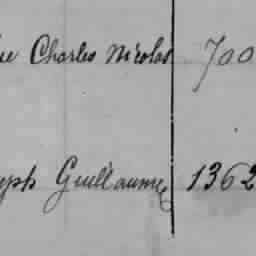 ue Charles Nicolas 700
eph Guillaume 1362